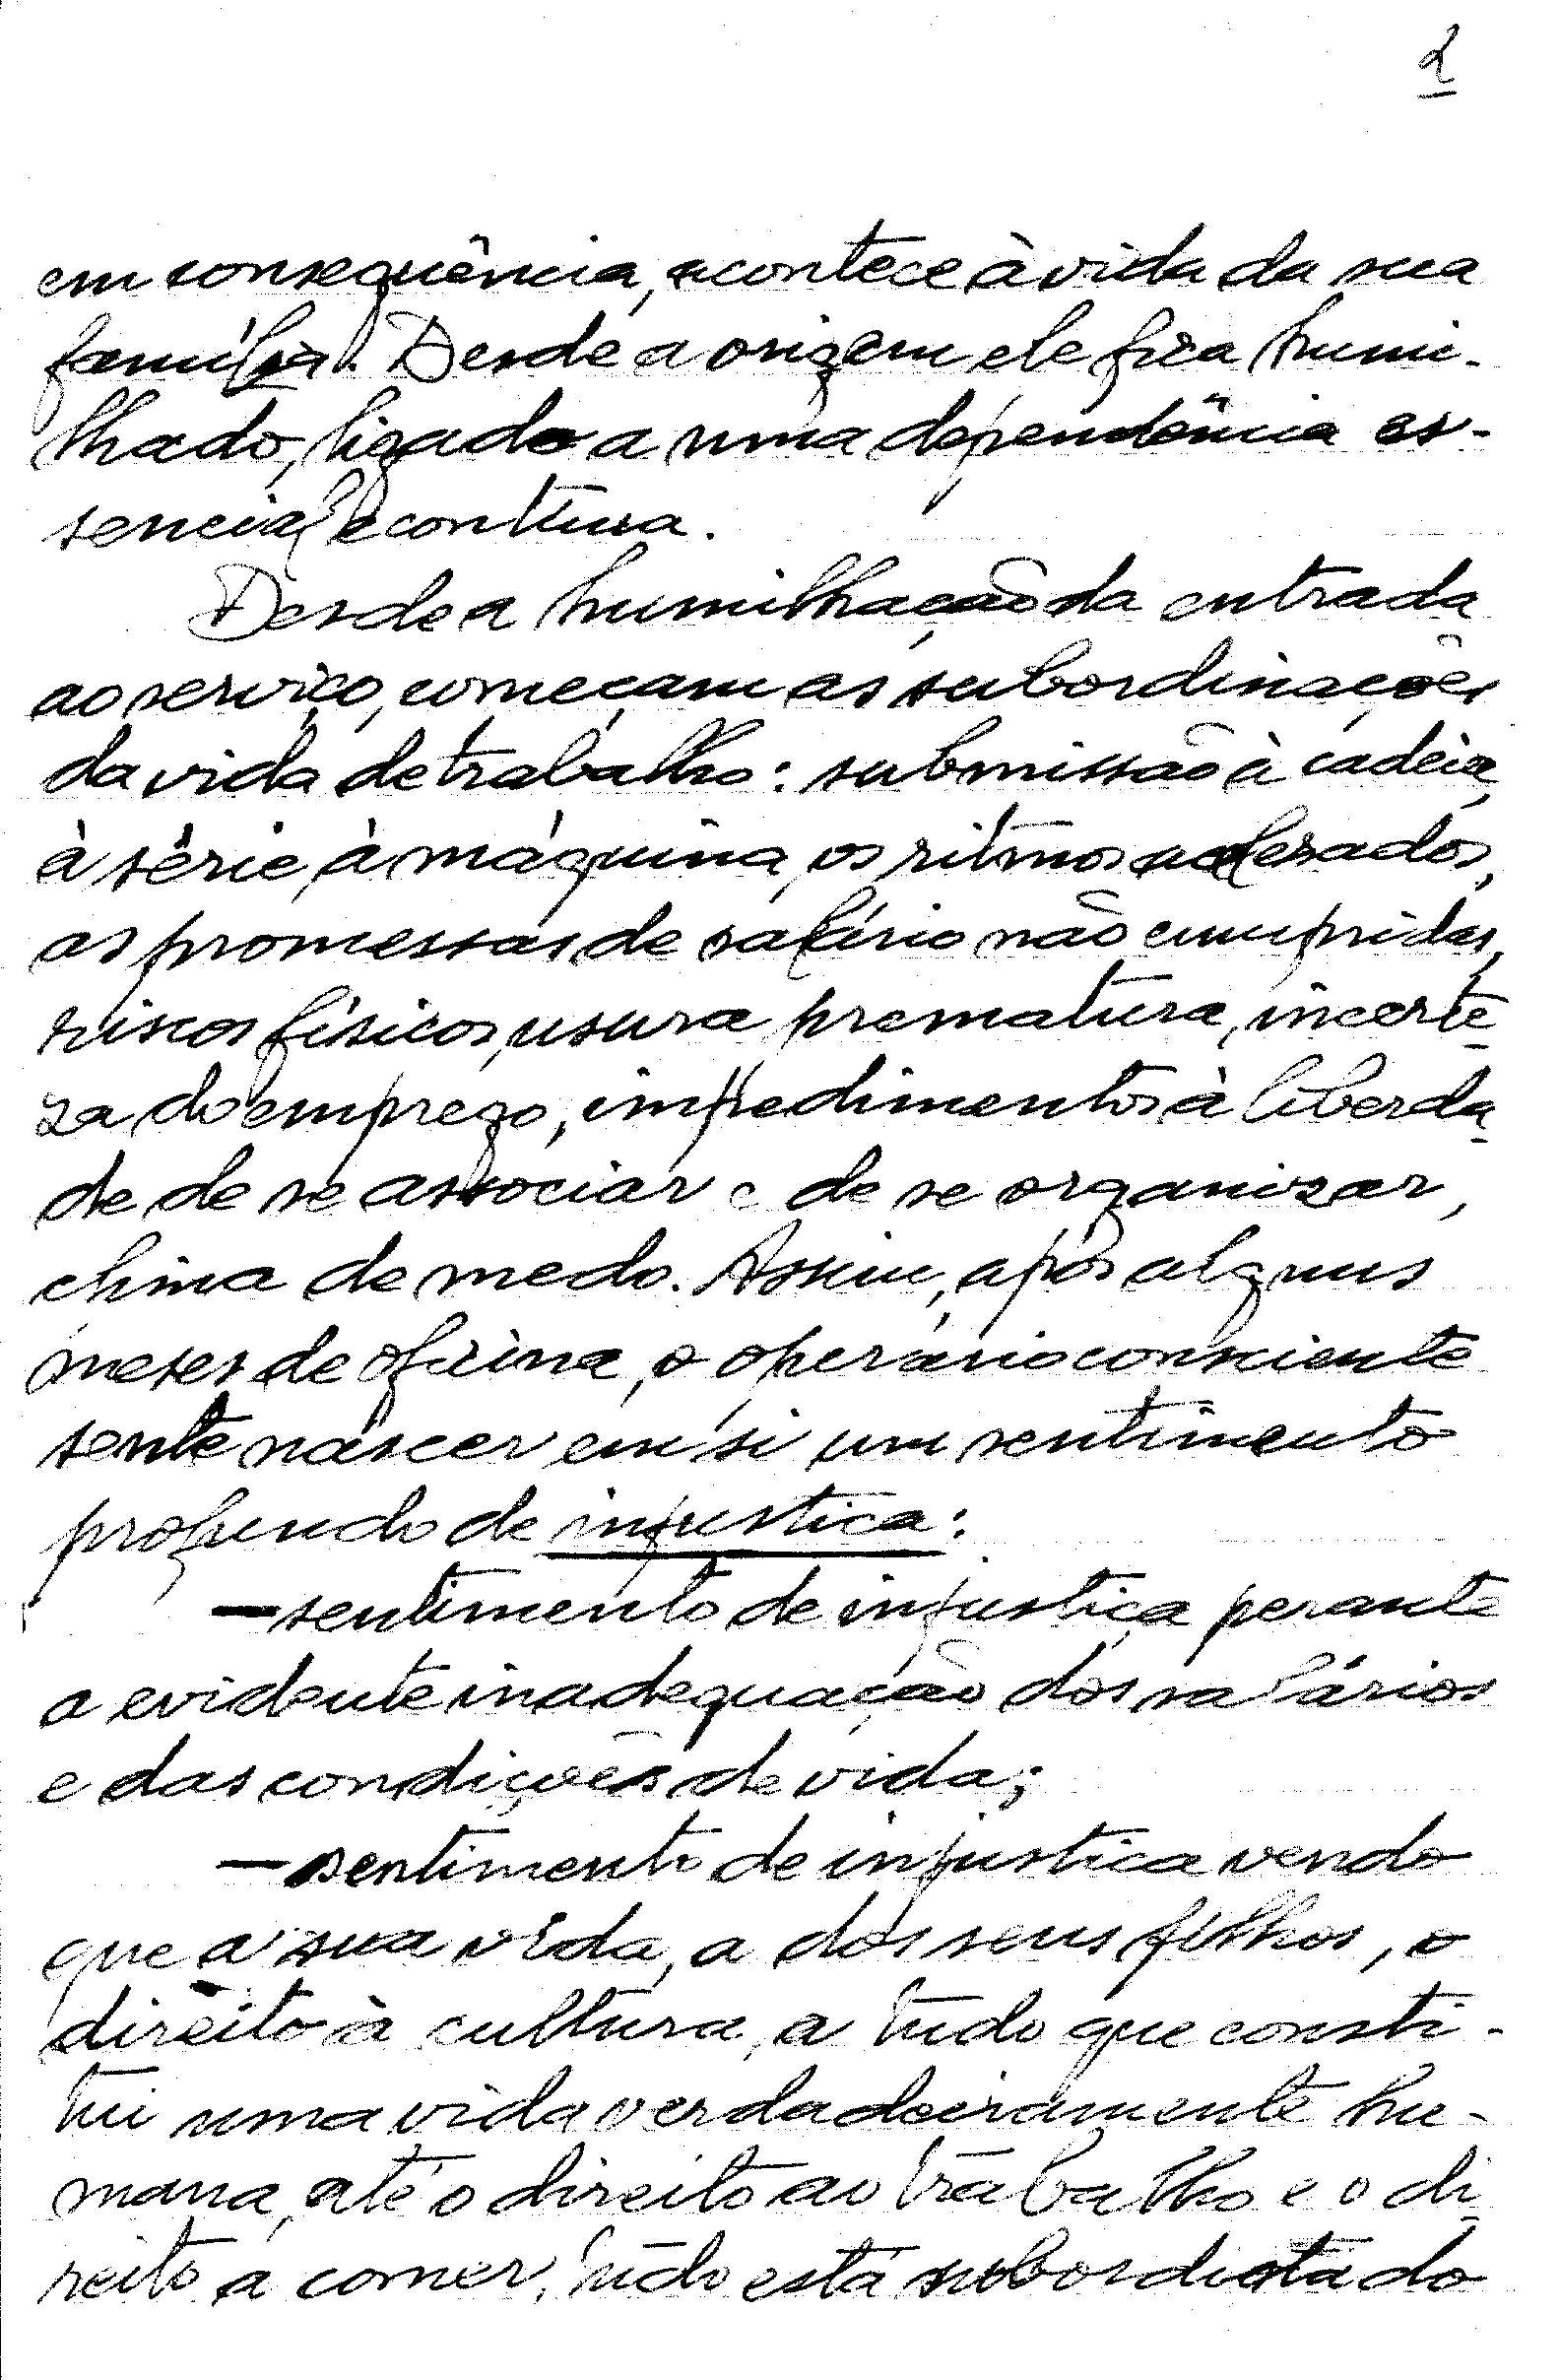 2
em consequência, acontece à vida da sua
família. Desde a origem ele fica humi-
lhado, ligado a uma dependência es-
sencial e contínua.
Desde a humilhação da entrada
ao serviço, começam as subordinações
da vida de trabalho: submissão à cadeia,
à série, à máquina, os ritmos acelerados,
as promessas de salário não cumpridas,
riscos físicos, usura prematura, incerte-
za do emprego, impedimentos à liberda-
de de se associar e de se organizar,
clima de medo. Assim, após alguns
meses de oficina, o operário consciente
sente nascer em si um sentimento
profundo de injustica:
— sentimento de injustiça perante
a evidente inadequação dos salários
e das condições de vida;
— sentimento de injustica vendo
que a sua vida, a dos seus filhos, o
direito à cultura, a tudo que consti-
tui uma vida verdadeiramente hu-
mana, até o direito ao trabalho e o di-
reito a comer, tudo está subordinado